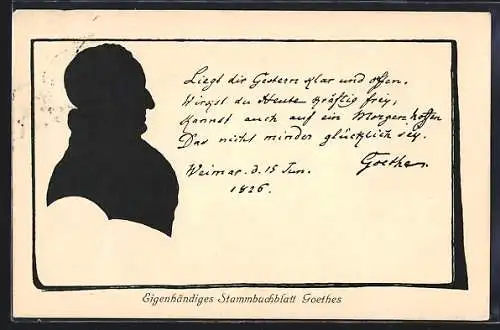 Liegt dir Gestern klar und offen,
Wirkst du Heute kräftig frey,
Kannst auch auf ein Morgen hoffen
Das nicht minder glücklich sey.
Weimar. d. 15 Jun.
1826.
Goethe
Eigenhändiges Stammbuchblatt Goethes